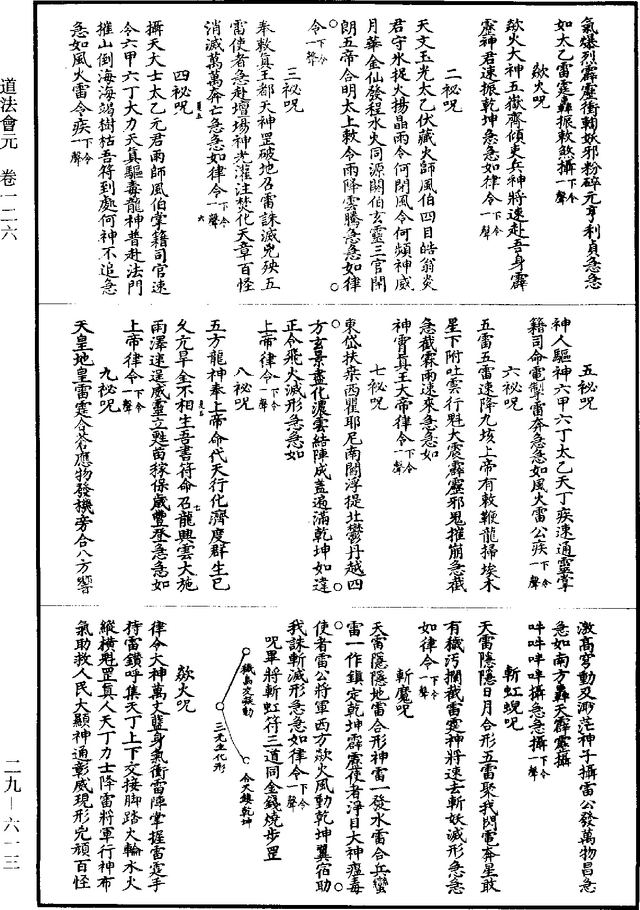 道法會元 卷一二六
二九—六一三
氣爆烈霹靂衝輷妖邪粉碎元亨利貞急急
如太乙雷霆轟振敕煞攝下令一聲
欻火咒
欻火大神五嶽齊傾吏兵神將速赴吾身霹
靂神君速振乾坤急急如律令下令一聲
二祕咒
天文玉光太乙伏藏火師風伯四目皓翁炎
君守水捉火揚晶雨令何閉風令何頻神威
月華金仙發程水火同源關伯玄靈三官開
朗五帝合明太上敕令雨降雲騰急急如律
令下令一聲
三祕咒
奉敕真王都天神罡破地召雷誅滅兇殃五
雷使者急赴壇場神光灌注焚化天章百怪
消滅萬萬奔亡急急如律令下令一聲
四祕咒
攝天大士太乙元君雨師風伯掌籍司官速
令六甲六丁大力天真驅毒龍神普赴法門
摧山倒海海竭樹枯吾符到處何神不追急
急如風火雷令疾下令一聲
五祕咒
神人驅神六甲六丁太乙天丁疾速通靈掌
籍司命電掣雷奔急急如風火雷公疾下令一聲
六祕咒
五雷五雷速降九垓上帝有敕鞭龍掃埃木
星下附吐雲行魁大震霹靂邪鬼摧崩急截
急截霖雨速來急急如
神霄真王大帝律令下令一聲
七祕咒
東岱扶桑西瞿耶尼南閻浮提北鬱丹越四
方玄景盡化濃雲結陣成蓋遍滿乾坤如違
正令飛火滅形急急如
上帝律令下令一聲
八祕咒
五方龍神奉上帝命代天行化濟度群生已
久亢旱全不相生吾書符命召龍興雲大施
雨澤速逞威靈立甦苗稼保歲豐登急急如
上帝律令下令一聲
九祕咒
天皇地皇雷霆合蒼應物發機旁合八方響
激高穹動又渺茫神子攝雷公發萬物昌急
急如南方轟天霹靂攝
吽吽吽吽攝急急攝下令一聲
斬虹蜺咒
天雷隱隱日月合形五雷聚我閃電奔星敢
有穢污攔截雷霆神將速去斬妖滅形急急
如律令下令一聲
斬魔咒
天雷隱隱地雷合形神雷一發水雷合兵蠻
雷一作鎮定乾坤霹靂使者淨目大神瘟毒
使者雷公將軍西方欻火風動乾坤翼宿助
我誅斬滅形急急如律令下令一聲
咒畢將斬虹符三道同金錢燒步罡
三元生化形
今天鎮乾坤
欻火咒
律令大神萬丈藍身氣衝雷陣掌握雷霆手
持雷鑽呼集天丁上下交接腳踏火輪水火
縱橫魁罡真人天丁力士降雷將軍行神布
氣助救人民大顯神通彰威現形兇頑百怪